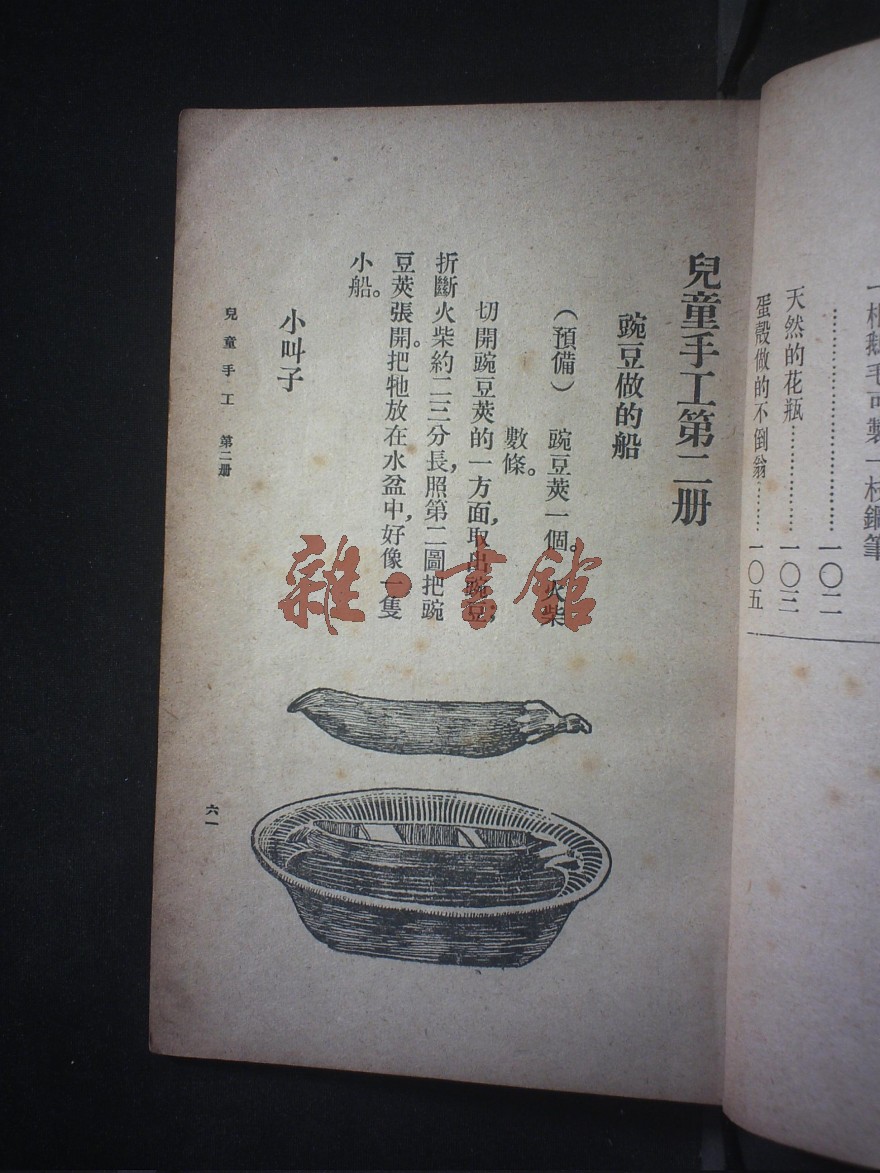 一〇二
天然的花瓶…………一〇三
蛋殼做的不倒翁………一〇五
兒童手工第二册
豌豆做的船
（預備）　豌豆莢一個。火柴
數條。
切開豌豆莢的一方面，取出豌豆；
折斷火柴約二三分長，照第二圖把豌
豆莢張開。把牠放在水盆中，好像一隻
小船。
小叫子
兒童手工　第二册
六一
雜·書館